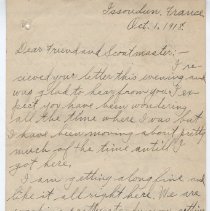 Issoudun, France
Oct. 1, 1918.
Dear Friend and Scoutmaster:-
I re-
ceived your letter this evening and
was glad to hear from you. I ex-
pect you have been wondering
all the time where I was but
I have been moving about pretty
much of the time untill I
got here.
I am getting along fine and
like it all right here. We are